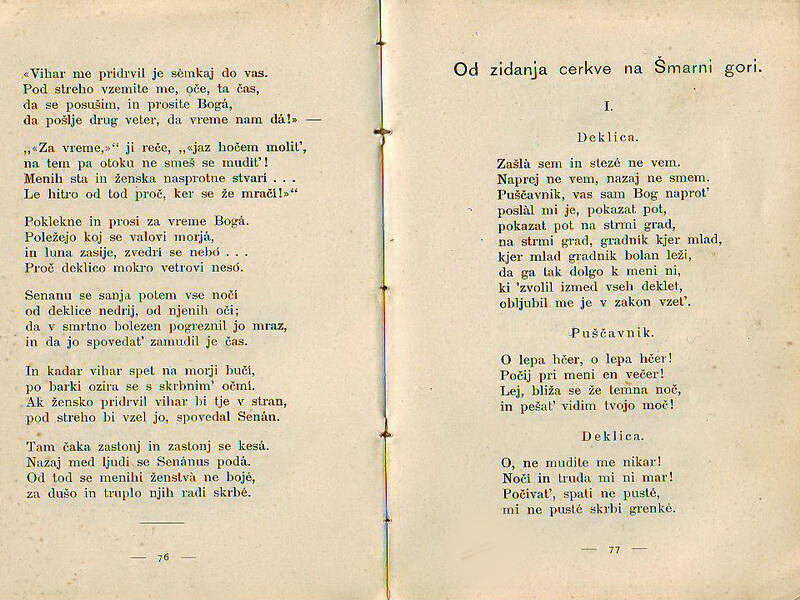 «Vihar me pridrvil je sèmkaj do vas.
Pod streho vzemite me, oče, ta čas,
da se posušim, in prosite Bogá,
da pošlje drug veter, da vreme nam dá!» —
„«Za vreme,»“ ji reče, „«jaz hočem molit’,
na tem pa otoku ne smeš se mudit’!
Menih sta in ženska nasprotne stvari . . .
Le hitro od tod proč, ker se že mračí!»“
Poklekne in prosi za vreme Bogá.
Poležejo koj se valovi morjá,
in luna zasije, zvedrí se nebó . . .
Proč deklico mokro vetrovi nesó.
Senanu se sanja potem vse noči
od deklice nedrij, od njenih oči;
da v smrtno bolezen pogreznil jo mraz,
in da jo spovedat’ zamudil je čas.
In kadar vihar spet na morji bučí,
po barki ozira se s skrbnim’ očmí.
Ak žensko pridrvil vihar bi tje v stran,
pod streho bi vzel jo, spovedal Senán.
Tam čaka zastonj in zastonj se kesá.
Nazaj med ljudi se Senánus podá.
Od tod se menihi ženstvà ne bojé,
za dušo in truplo njih radi skrbé.
— 76 —
Od zidanja cerkve na Šmarni gori.
I.
Deklica.
Zašlà sem in stezé ne vem.
Naprej ne vem, nazaj ne smem.
Puščavnik, vas sam Bog naprot’
poslàl mi je, pokazat pot,
pokazat pot na strmi grad,
na strmi grad, gradnik kjer mlad,
kjer mlad gradnik bolan leži,
da ga tak dolgo k meni ni,
ki ’zvolil izmed vseh deklet,
obljubil me je v zakon vzet’.
Puščavnik.
O lepa hčer, o lepa hčer!
Počij pri meni en večer!
Lej, bliža se že temna noč,
in pešat’ vidim tvojo moč!
Deklica.
O, ne mudite me nikar!
Noči in truda mi ni mar!
Počivat’, spati ne pusté,
mi ne pusté skrbi grenké.
— 77 —